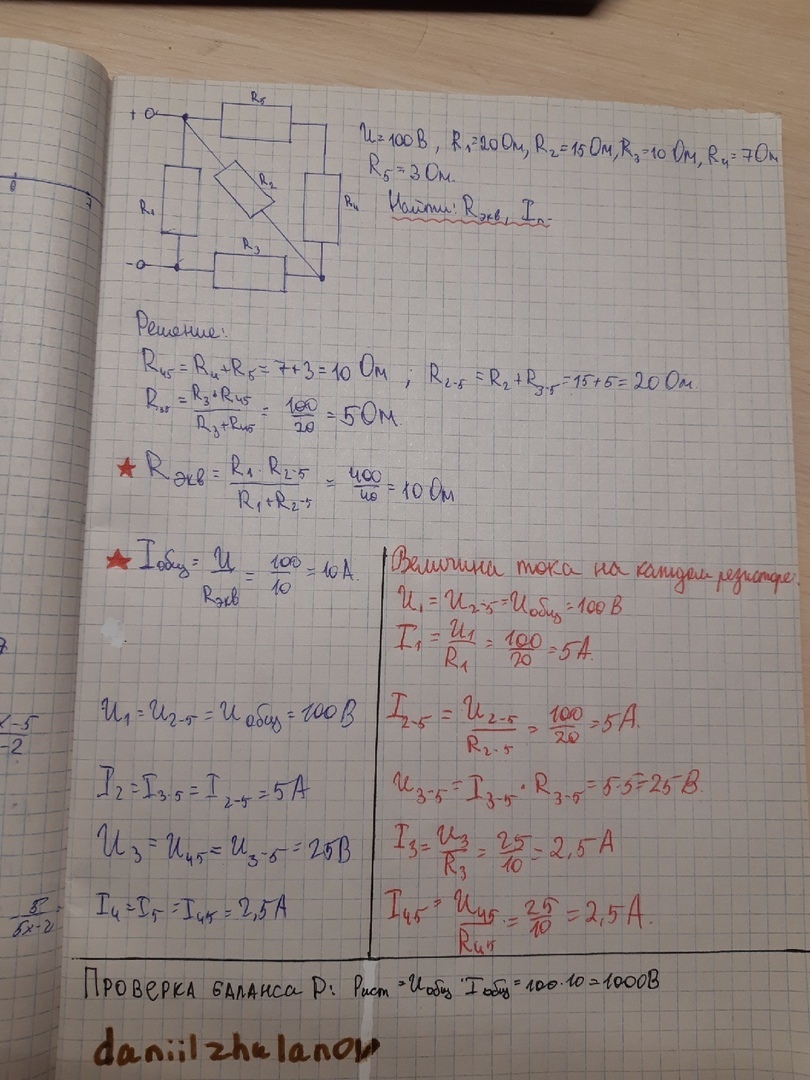 R₅
+
R₂
R₁
R₄
R₃
-
U=100В, R₁=20Ом, R₂=15Ом, R₃=10 Ом, R₄=7Ом
R₅=3Ом.
Найти: Rэкв, Iп-
Решение:
R₄₅=R₄+R₅=7+3=10 Ом ; R₂-₅=R₂+R₃-₅=15+5=20 Ом
R₃₅=R₃·R₄₅/R₃+R₄₅=100/20=5Ом.
★ Rэкв=R₁·R₂-₅/R₁+R₂-₅=400/40=10 Ом
★ Iобщ=U/Rэкв=100/10=10А.
U₁=U₂-₅=Uобщ=100В
I₂=I₃-₅=I₂-₅=5А
U₃=U₄₅=U₃-₅=25В
I₄=I₅=I₄₅=2,5А
Величина тока на каждом резисторе:
U₁=U₂-₅=Uобщ=100В
I₁=U₁/R₁=100/20=5А.
I₂-₅=U₂-₅/R₂-₅=100/20=5А.
U₃-₅=I₃-₅·R₃-₅=5·5=25В.
I₃=U₃/R₃=25/10=2,5А
I₄₅=U₄₅/R₄₅=25/10=2,5А.
ПРОВЕРКА БАЛАНСА P: Pист=Uобщ·Iобщ=100·10=1000В
daniilzhulanov
x-5
-2
5
5x-2